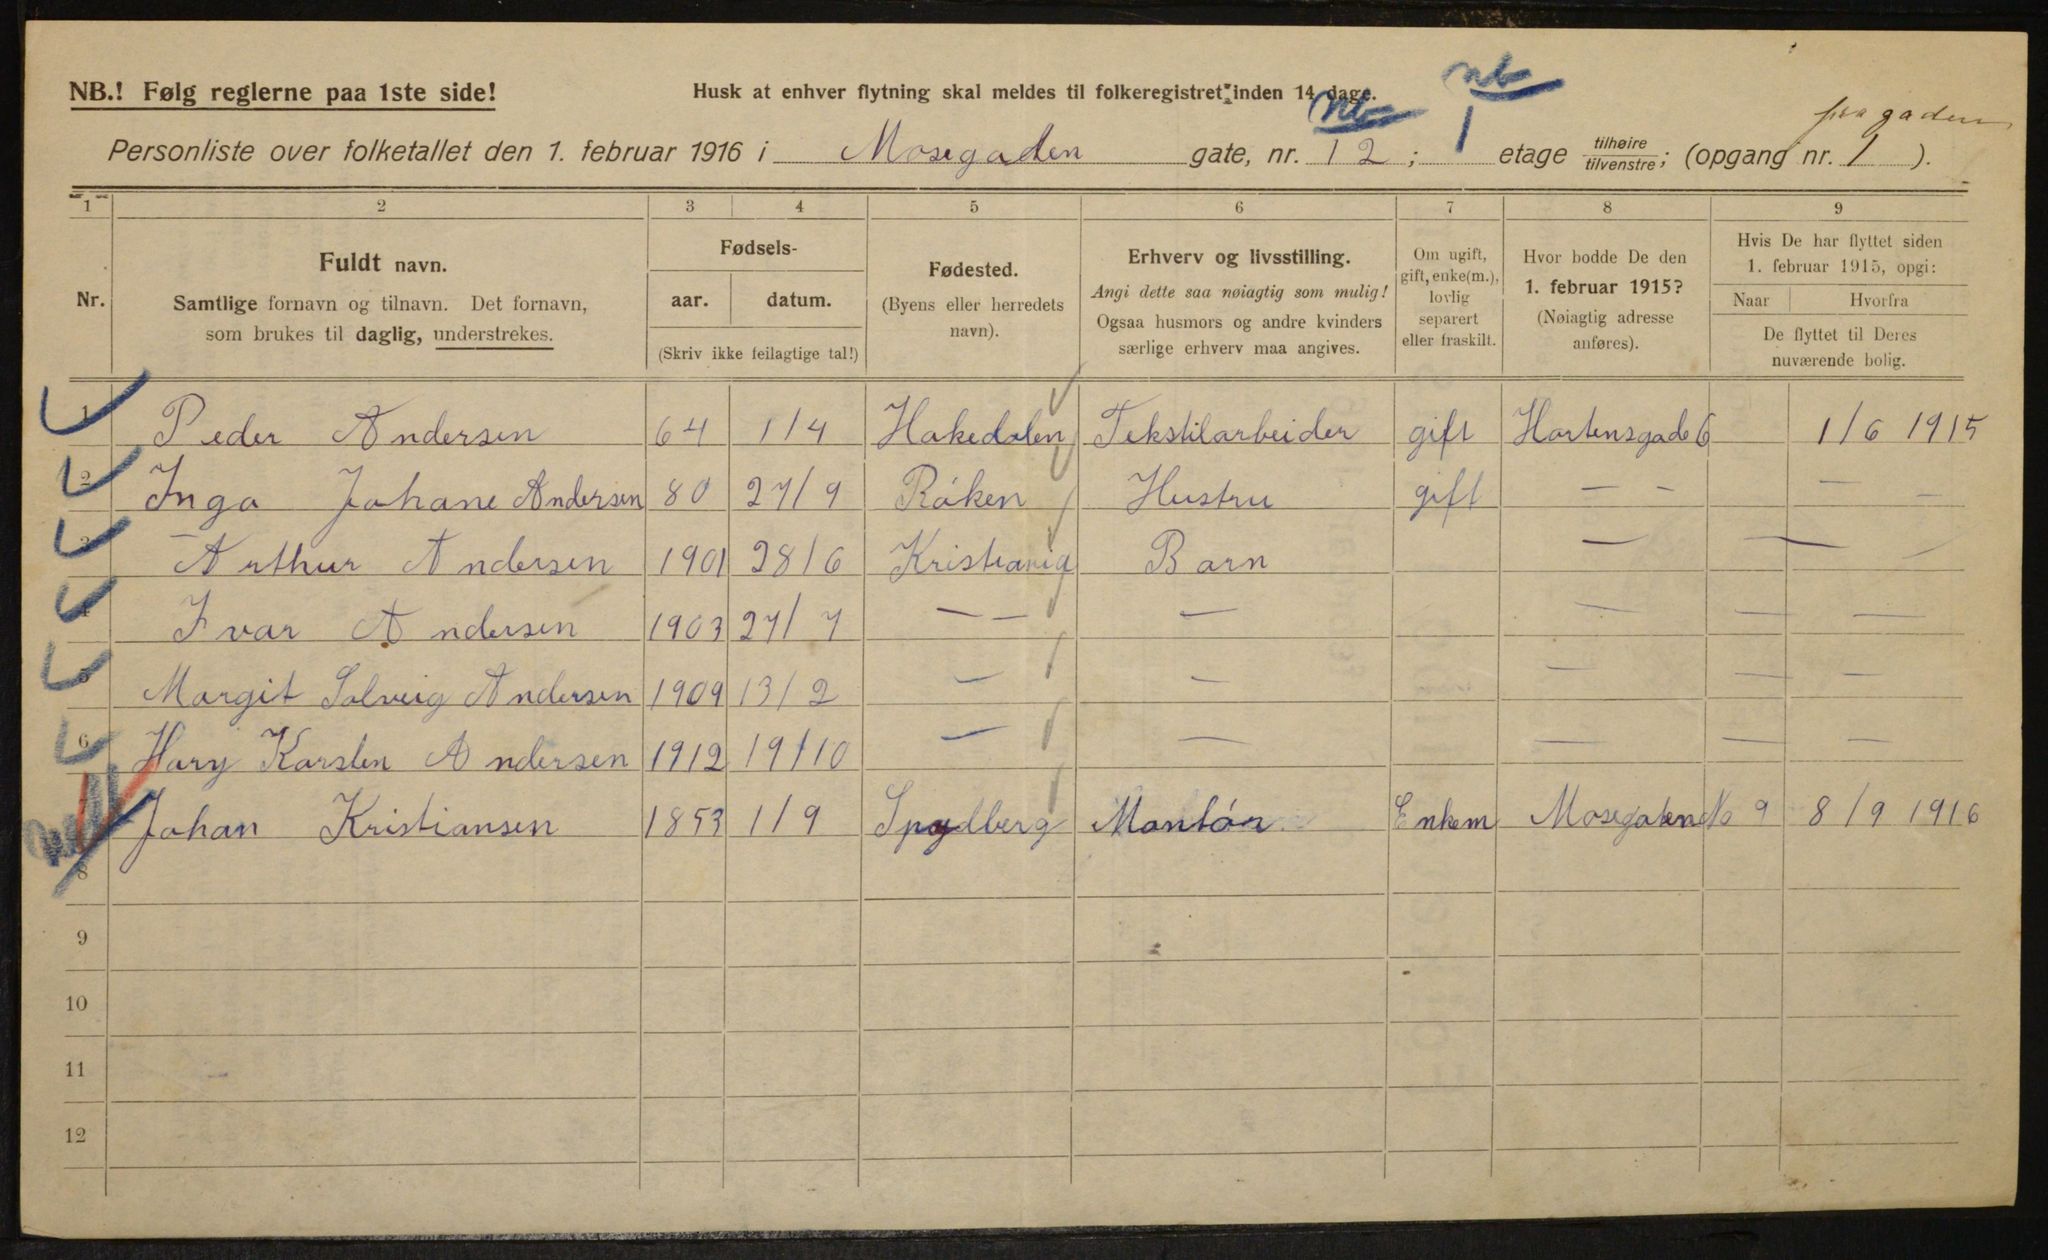 NB.! Følg reglerne paa 1ste side!
Husk at enhver flytning skal meldes til folkeregistret inden 14 dage.
nb nb
fra gaden
Personliste over folketallet den 1. februar 1916 i Mosegaden gate, nr. 12; 1 etage tilhøire/tilvenstre; (opgang nr. 1).
1 2 3 4 5 6 7 8 9
Nr.
Fuldt navn.
Samtlige fornavn og tilnavn. Det fornavn,
som brukes til daglig, understrekes.
Fødsels-
aar. datum.
(Skriv ikke feilagtige tal!)
Fødested.
(Byens eller herredets
navn).
Erhverv og livsstilling.
Angi dette saa nøiagtig som mulig!
Ogsaa husmors og andre kvinders
særlige erhverv maa angives.
Om ugift,
gift, enke(m.),
lovlig
separert
eller fraskilt.
Hvor bodde De den
1. februar 1915?
(Nøiagtig adresse
anføres).
Hvis De har flyttet siden
1. februar 1915, opgi:
Naar Hvorfra
De flyttet til Deres
nuværende bolig.
1 Peder Andersen 64 1/4 Hakedalen Tekstilarbeider gift Hortensgade 6 1/6 1915
2 Inga Johane Andersen 80 27/9 Róken Hustru gift — — — —
3 Arthur Andersen 1901 28/6 Kristiania Barn — — —
4 Ivar Andersen 1903 27/7 — — — — — —
5 Margit Solveig Andersen 1909 13/2 — — — — —
6 Hary Karsten Andersen 1912 19/10 — — — — —
Johan Kristiansen 1853 1/9 Spydberg Montór Enkem Mosegaten No 9 8/9 1916
8
9
10
11
12